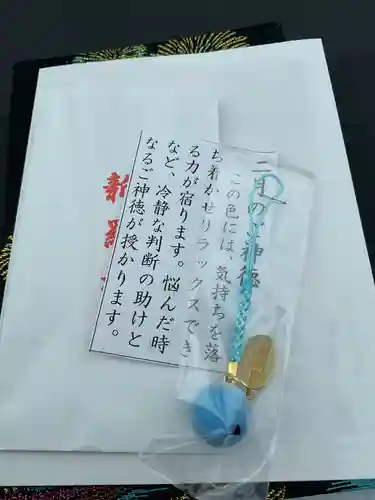 二月のご神徳
この色には、気持ちを落
ち着かせリラックスでき
る力が宿ります。悩んだ時
など、冷静な判断の助けと
なるご神徳が授かります。
新羅